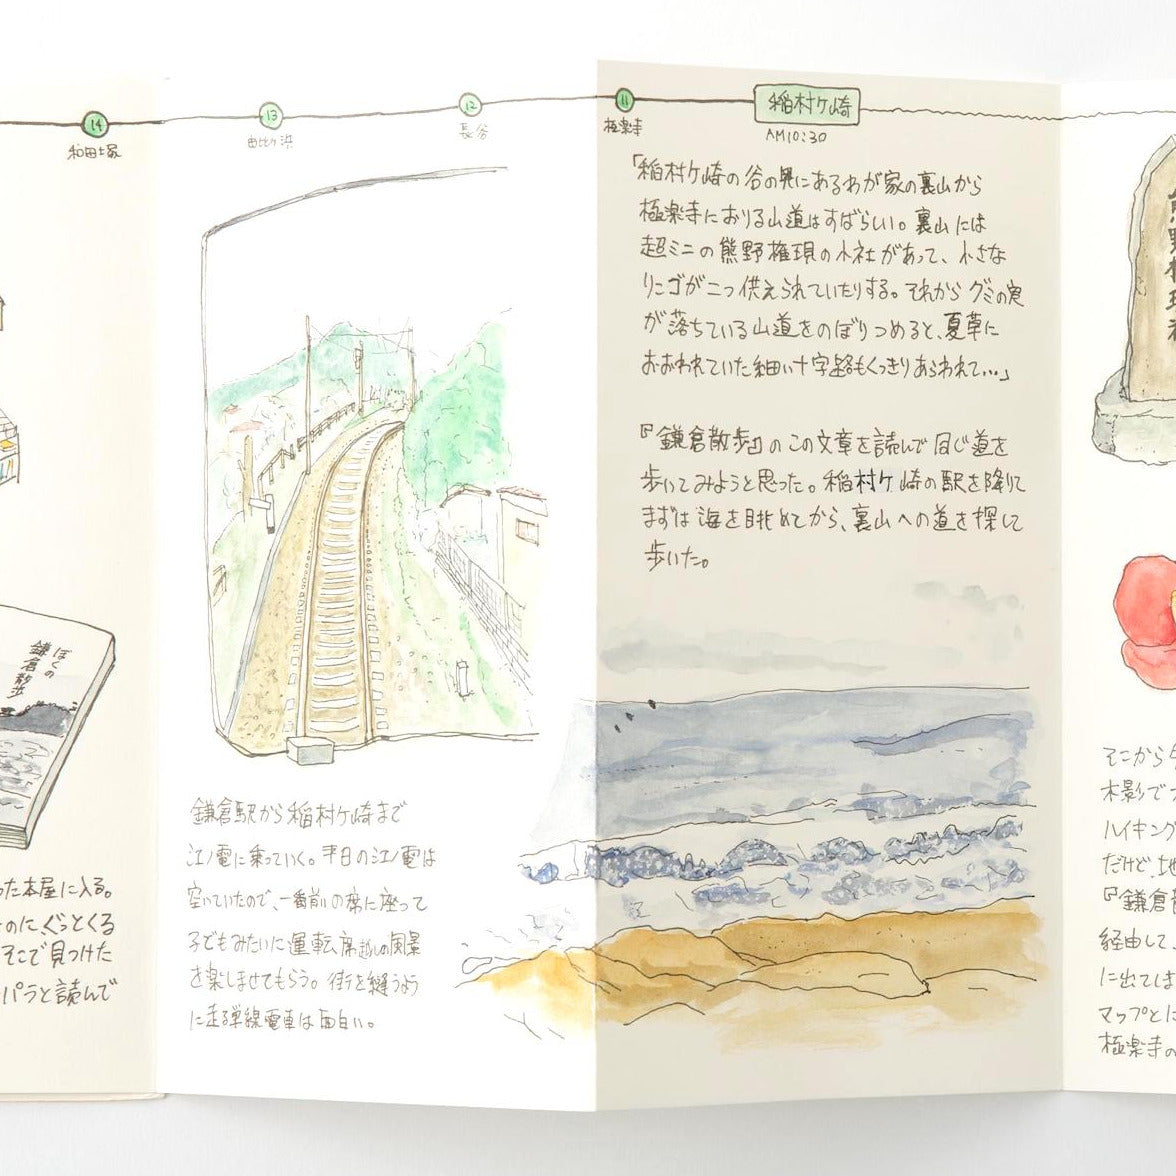 14
和田塚
13
由比ヶ浜
12
長谷
11
極楽寺
稲村ケ崎
AM10:30
「稲村ケ崎の谷の奥にあるわが家の裏山から
極楽寺におりる山道はすばらしい。裏山には
超ミニの熊野権現の小社があって、小さな
リンゴが二つ供えられていたりする。それからグミの実
が落ちている山道をのぼりつめると、夏草に
おおわれていた細い十字路もくっきりあらわれて…」
『鎌倉散歩』のこの文章を読んで同じ道を
歩いてみようと思った。稲村ケ崎の駅を降りて
まずは海を眺めてから、裏山への道を探して
歩いた。
鎌倉駅から稲村ケ崎まで
江ノ電に乗っていく。平日の江ノ電は
空いていたので、一番前の席に座って
子どもみたいに運転席越しの風景
を楽しませてもらう。街を縫うよう
に走る単線電車は面白い。
ぼくの
鎌倉散歩
った本屋に入る。
のにぐっとくる
そこで見つけた
パラと読んで
そこから
木影で
ハイキング
だけど、地
『鎌倉
経由して、
に出てしま
マップとに
極楽寺の